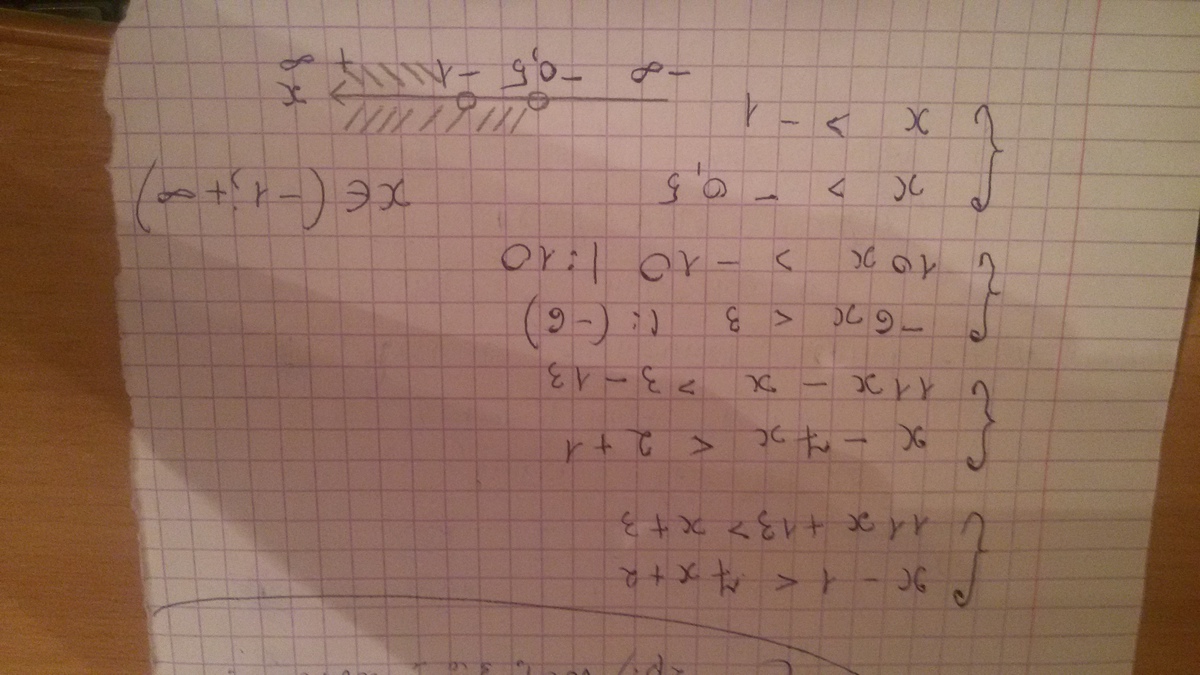 x - 1 < 7x+2
11x +13 > x+3
x - 7x < 2+1
11x - x > 3-13
-6x < 3 |:(-6)
10x > -10 |:10
x > -0,5 x∈(-1;+∞)
x > -1
x
-∞ -0,5 -1 +∞